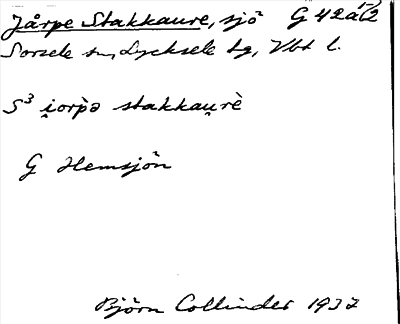 Jårpe Stakkaure, sjö G 42 a 1-2
Sorsele sn, Lycksele lg, Vbt l.
S³ i̯orpə stakkau̯rè
G Hemsjön
Björn Collinder 1937